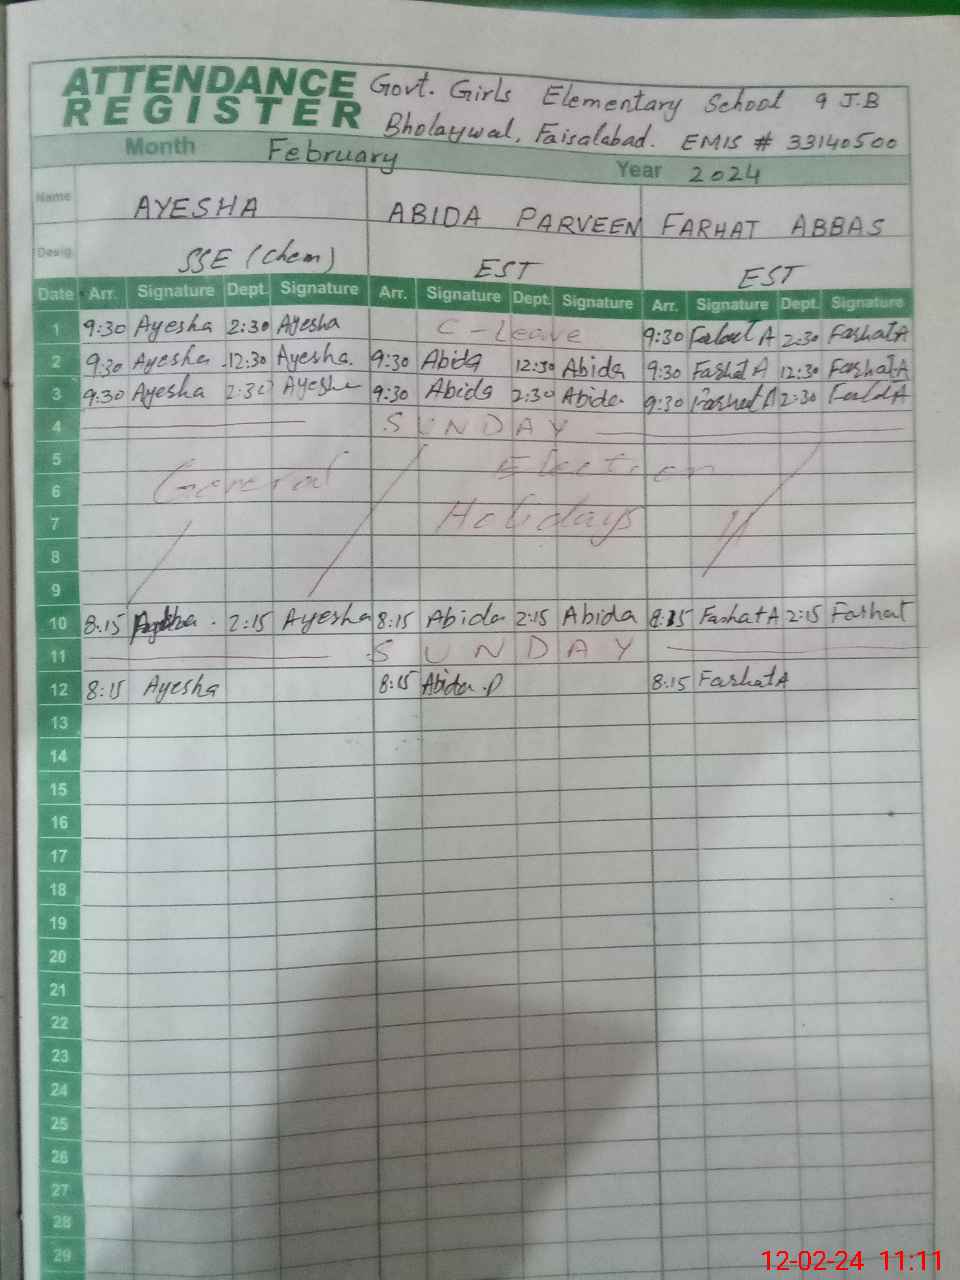 ATTENDANCE REGISTER Govt. Girls Elementary School 9 J.B
Bholaywal, Faisalabad. EMIS # 33140500
Month February Year 2024
Name AYESHA ABIDA PARVEEN FARHAT ABBAS
Desig. SSE (Chem) EST EST
Date Arr. Signature Dept. Signature Arr. Signature Dept. Signature Arr. Signature Dept. Signature
1 9:30 Ayesha 2:30 Ayesha C-Leave 9:30 2:30 FarhatA
2 9:30 Ayesha 12:30 Ayesha. 9:30 Abida 12:30 Abida 9:30 Farhat A 12:30 FarhatA
3 9:30 Ayesha 2:30 Ayesha 9:30 Abida 2:30 Abida. 9:30 Farhat A 2:30
4 SUNDAY
5 General Election
6
7 Holidays
8
9
10 8:15 2:15 Ayesha 8:15 Abida 2:15 Abida 8:15 FarhatA 2:15 Farhat
11 SUNDAY
12 8:15 Ayesha 8:15 Abida .P 8:15 FarhatA
13
14
15
16
17
18
19
20
21
22
23
24
25
26
27
28
29
12-02-24 11:11